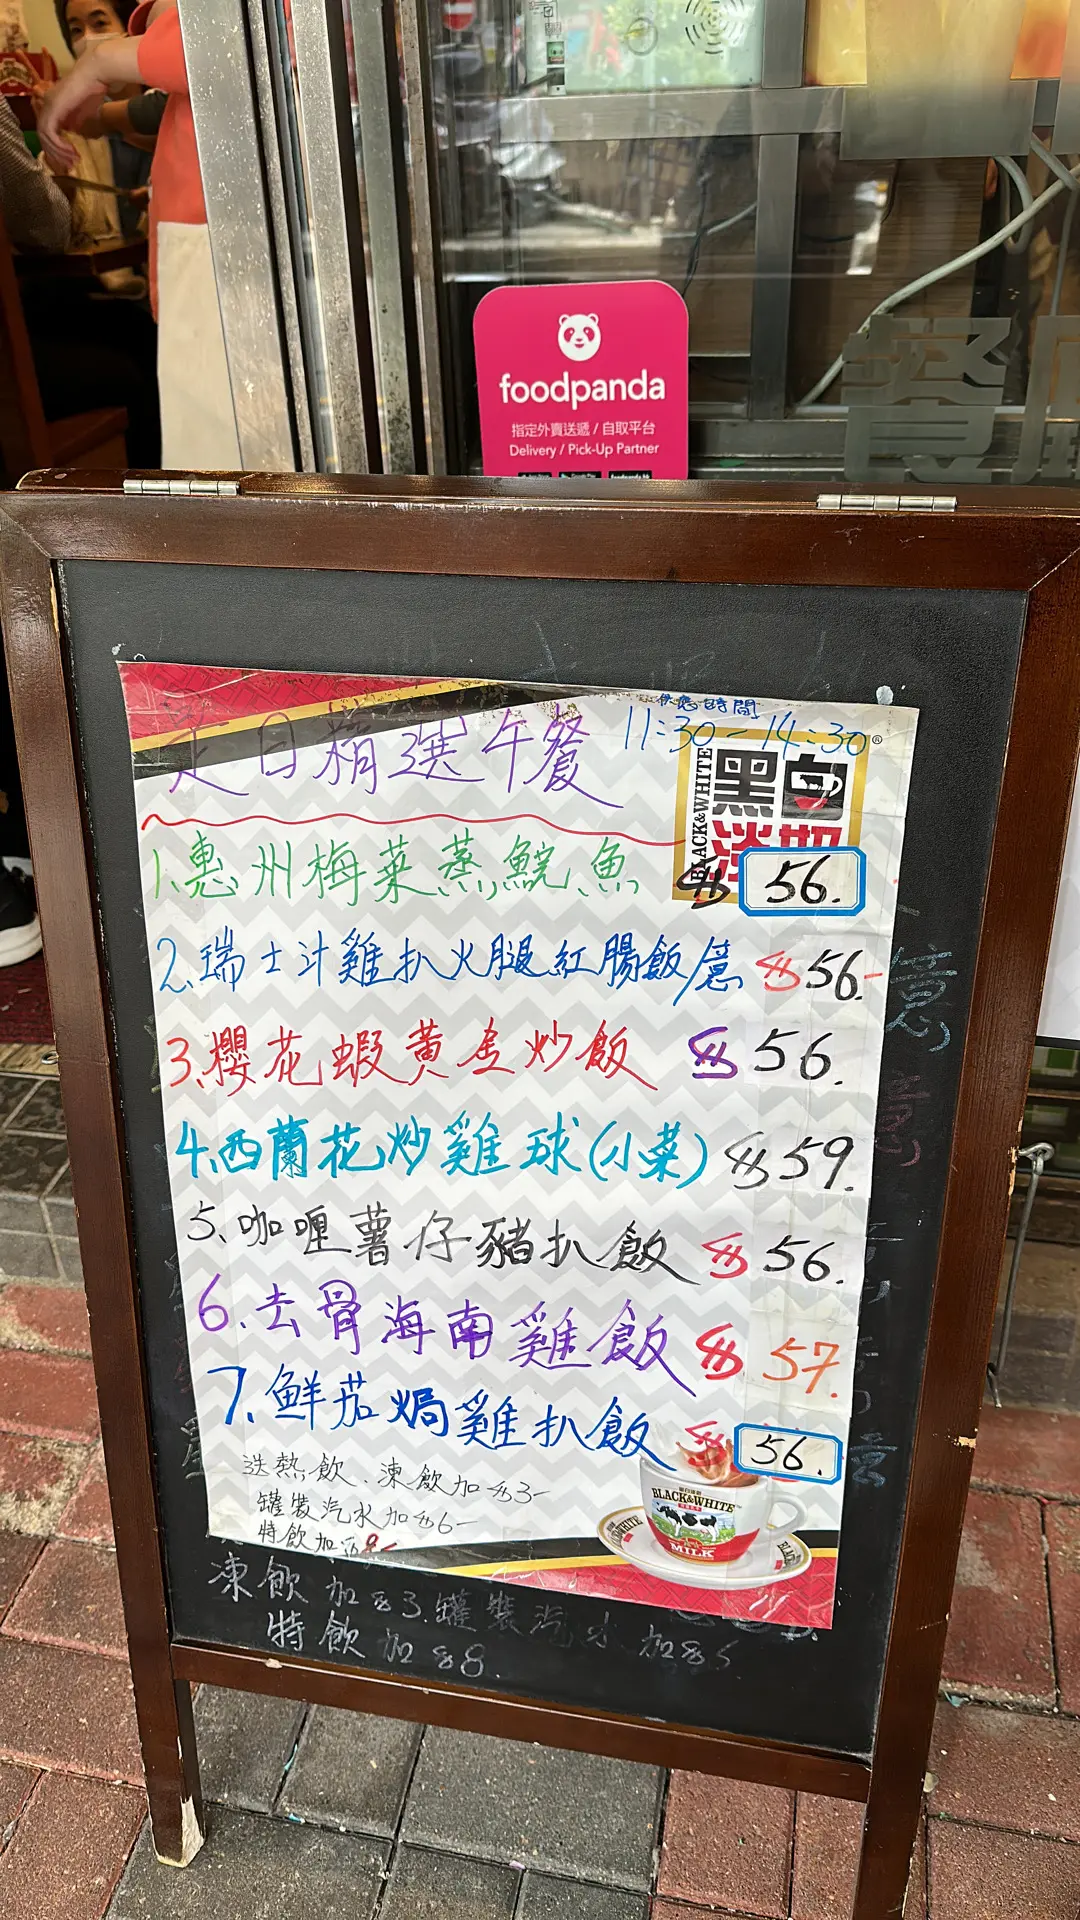 foodpanda
指定外賣送遞 / 自取平台
Delivery / Pick-Up Partner
餐
供應時間
11:30-14:30
是日精選午餐
BLACK&WHITE
黑白
淡奶
1.惠州梅菜蒸鯇魚 $56.
2.瑞士汁雞扒火腿紅腸飯/意 $56.-
3.櫻花蝦黃金炒飯 $56.
4.西蘭花炒雞球(小菜) $59.
5.咖喱薯仔豬扒飯 $56.
6.去骨海南雞飯 $57.
7.鮮茄焗雞扒飯 $56.
送熱飲、凍飲加$3-
罐裝汽水加$6-
特飲加$8-
BLACK&WHITE
MILK
凍飲加$3.罐裝汽水加$6
特飲加$8.
意